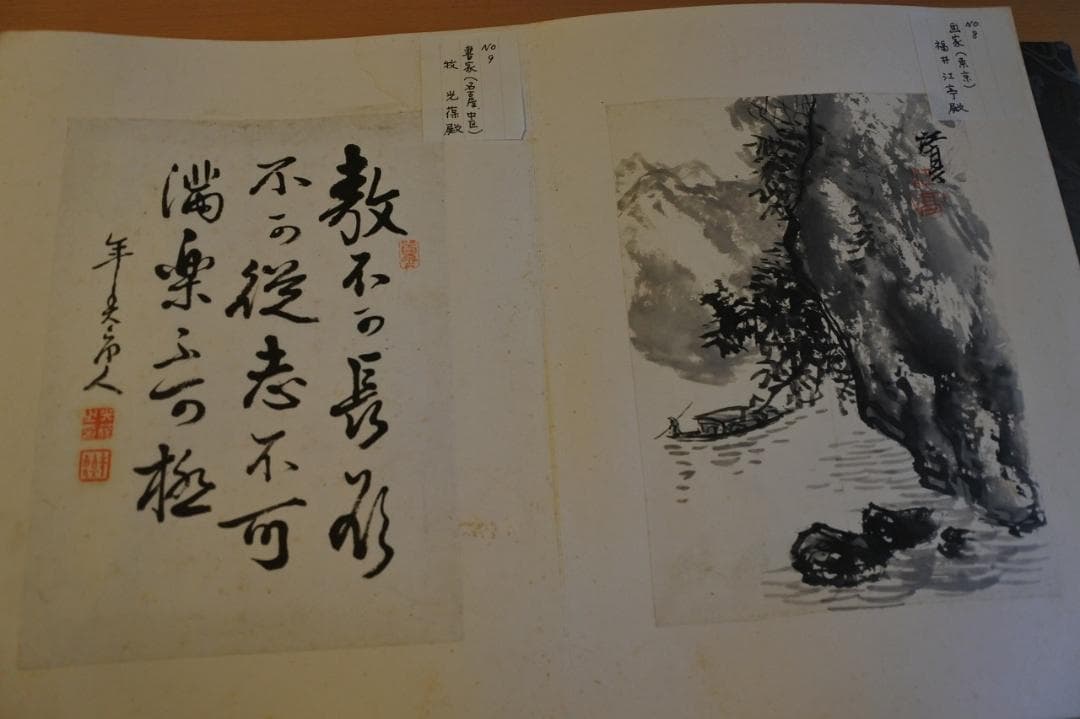 NO 8
画家(東京)
福井江亭殿
NO 9
書家(名古屋中区)
牧 光葆殿
敖不可長欲
不可従志不可
満楽不可極